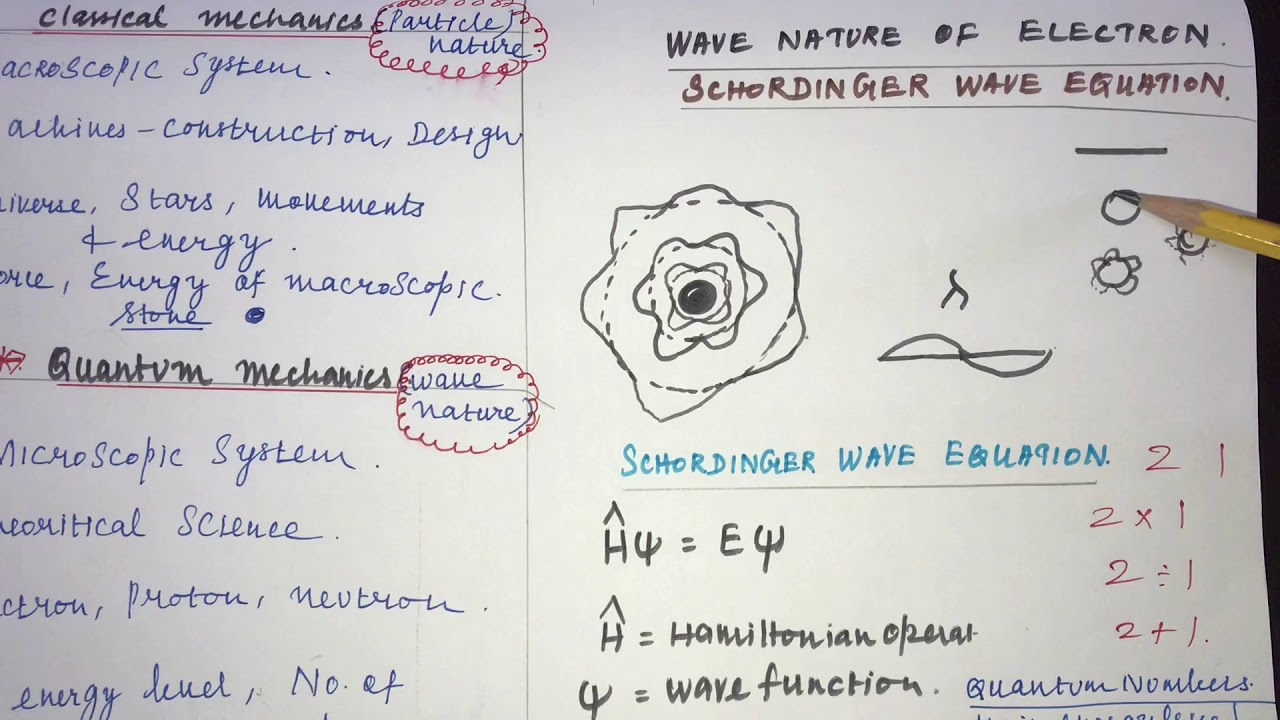 Classical mechanics (Particle
nature)
System.
Construction, Design
Stars, movements
& energy.
Energy of macroscopic.
Stone
Quantum mechanics (wave
nature)
System.
Science.
Proton, neutron.
energy level, No. of
WAVE NATURE OF ELECTRON.
SCHORDINGER WAVE EQUATION.
λ
SCHORDINGER WAVE EQUATION.
2 1
Ĥψ = Eψ
2 × 1
2 ÷ 1
Ĥ = Hamiltonian operat
2 + 1.
ψ = wave function.
Quantum Numbers.